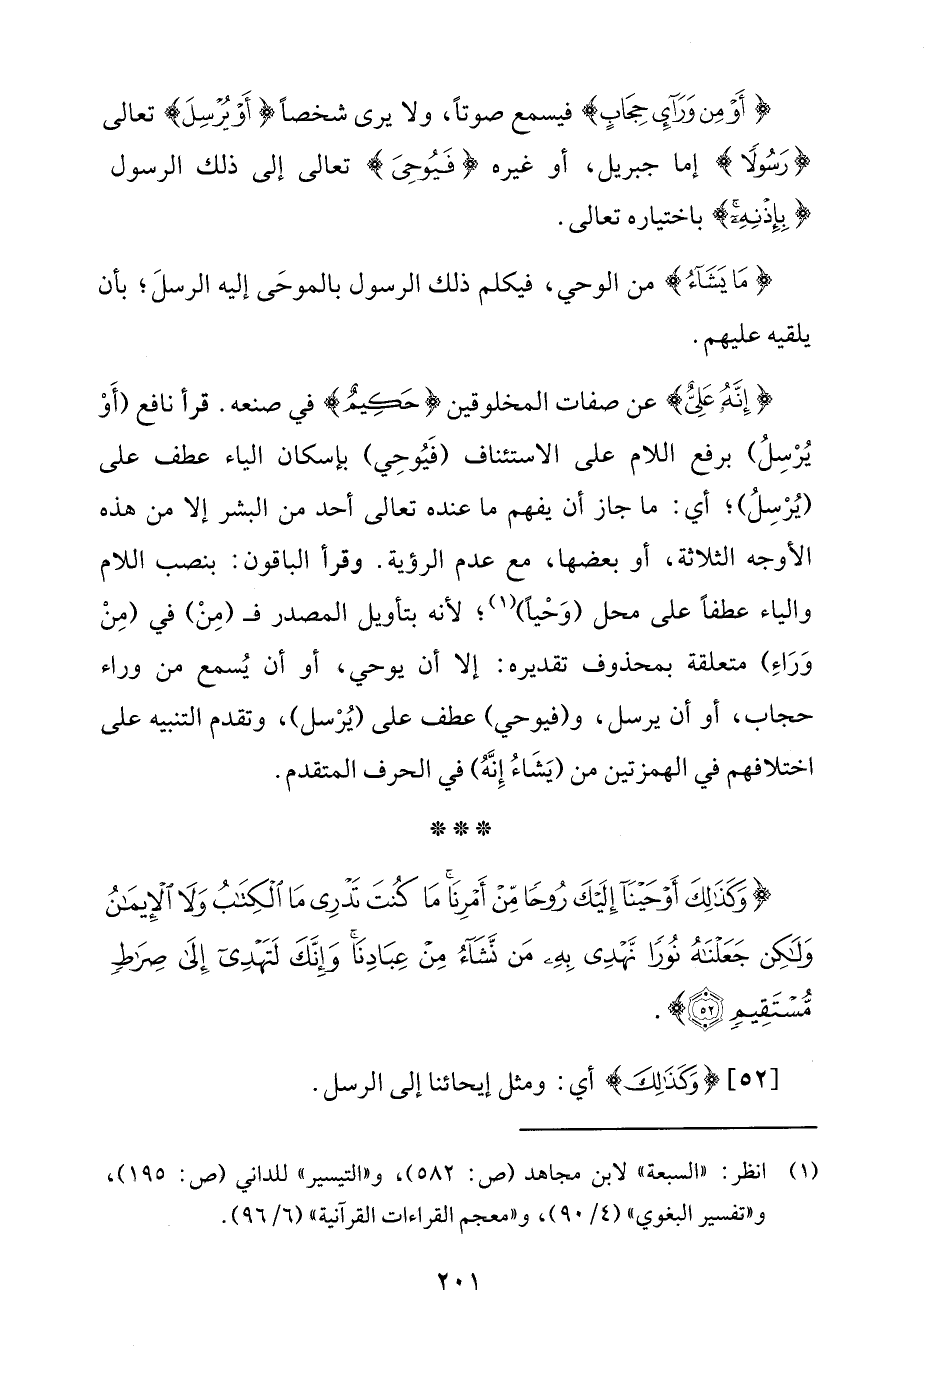 ﴿أَوْ مِن وَرَآئِ حِجَابٍ﴾ فيسمع صوتاً، ولا يرى شخصاً ﴿أَوْ يُرْسِلَ﴾ تعالى
﴿رَسُولًا﴾ إما جبريل، أو غيره ﴿فَيُوحِيَ﴾ تعالى إلى ذلك الرسول
﴿بِإِذْنِهِۦ﴾ باختياره تعالى.
﴿مَا يَشَآءُ﴾ من الوحي، فيكلم ذلك الرسول بالموحَى إليه الرسلَ؛ بأن
يلقيه عليهم.
﴿إِنَّهُۥ عَلِيٌّ﴾ عن صفات المخلوقين ﴿حَكِيمٌ﴾ في صنعه. قرأ نافع (أَوْ
يُرْسِلُ) برفع اللام على الاستئناف (فَيُوحِي) بإسكان الياء عطف على
(يُرْسِلُ)؛ أي: ما جاز أن يفهم ما عنده تعالى أحد من البشر إلا من هذه
الأوجه الثلاثة، أو بعضها، مع عدم الرؤية. وقرأ الباقون: بنصب اللام
والياء عطفاً على محل (وَحْياً)(١)؛ لأنه بتأويل المصدر فـ (مِنْ) في (مِنْ
وَرَاءِ) متعلقة بمحذوف تقديره: إلا أن يوحي، أو أن يُسمع من وراء
حجاب، أو أن يرسل، و(فيوحي) عطف على (يُرْسل)، وتقدم التنبيه على
اختلافهم في الهمزتين من (يَشَاءُ إِنَّهُ) في الحرف المتقدم.
* * *
﴿وَكَذَٰلِكَ أَوْحَيْنَآ إِلَيْكَ رُوحًا مِّنْ أَمْرِنَاۚ مَا كُنتَ تَدْرِى مَا ٱلْكِتَٰبُ وَلَا ٱلْإِيمَٰنُ
وَلَٰكِن جَعَلْنَٰهُ نُورًا نَّهْدِى بِهِۦ مَن نَّشَآءُ مِنْ عِبَادِنَاۚ وَإِنَّكَ لَتَهْدِىٓ إِلَىٰ صِرَٰطٍ
مُّسْتَقِيمٍ ٥٢﴾.
[٥٢] ﴿وَكَذَٰلِكَ﴾ أي: ومثل إيحائنا إلى الرسل.
(١) انظر: «السبعة» لابن مجاهد (ص: ٥٨٢)، و«التيسير» للداني (ص: ١٩٥)،
و«تفسير البغوي» (٤/ ٩٠)، و«معجم القراءات القرآنية» (٦/ ٩٦).
٢٠١